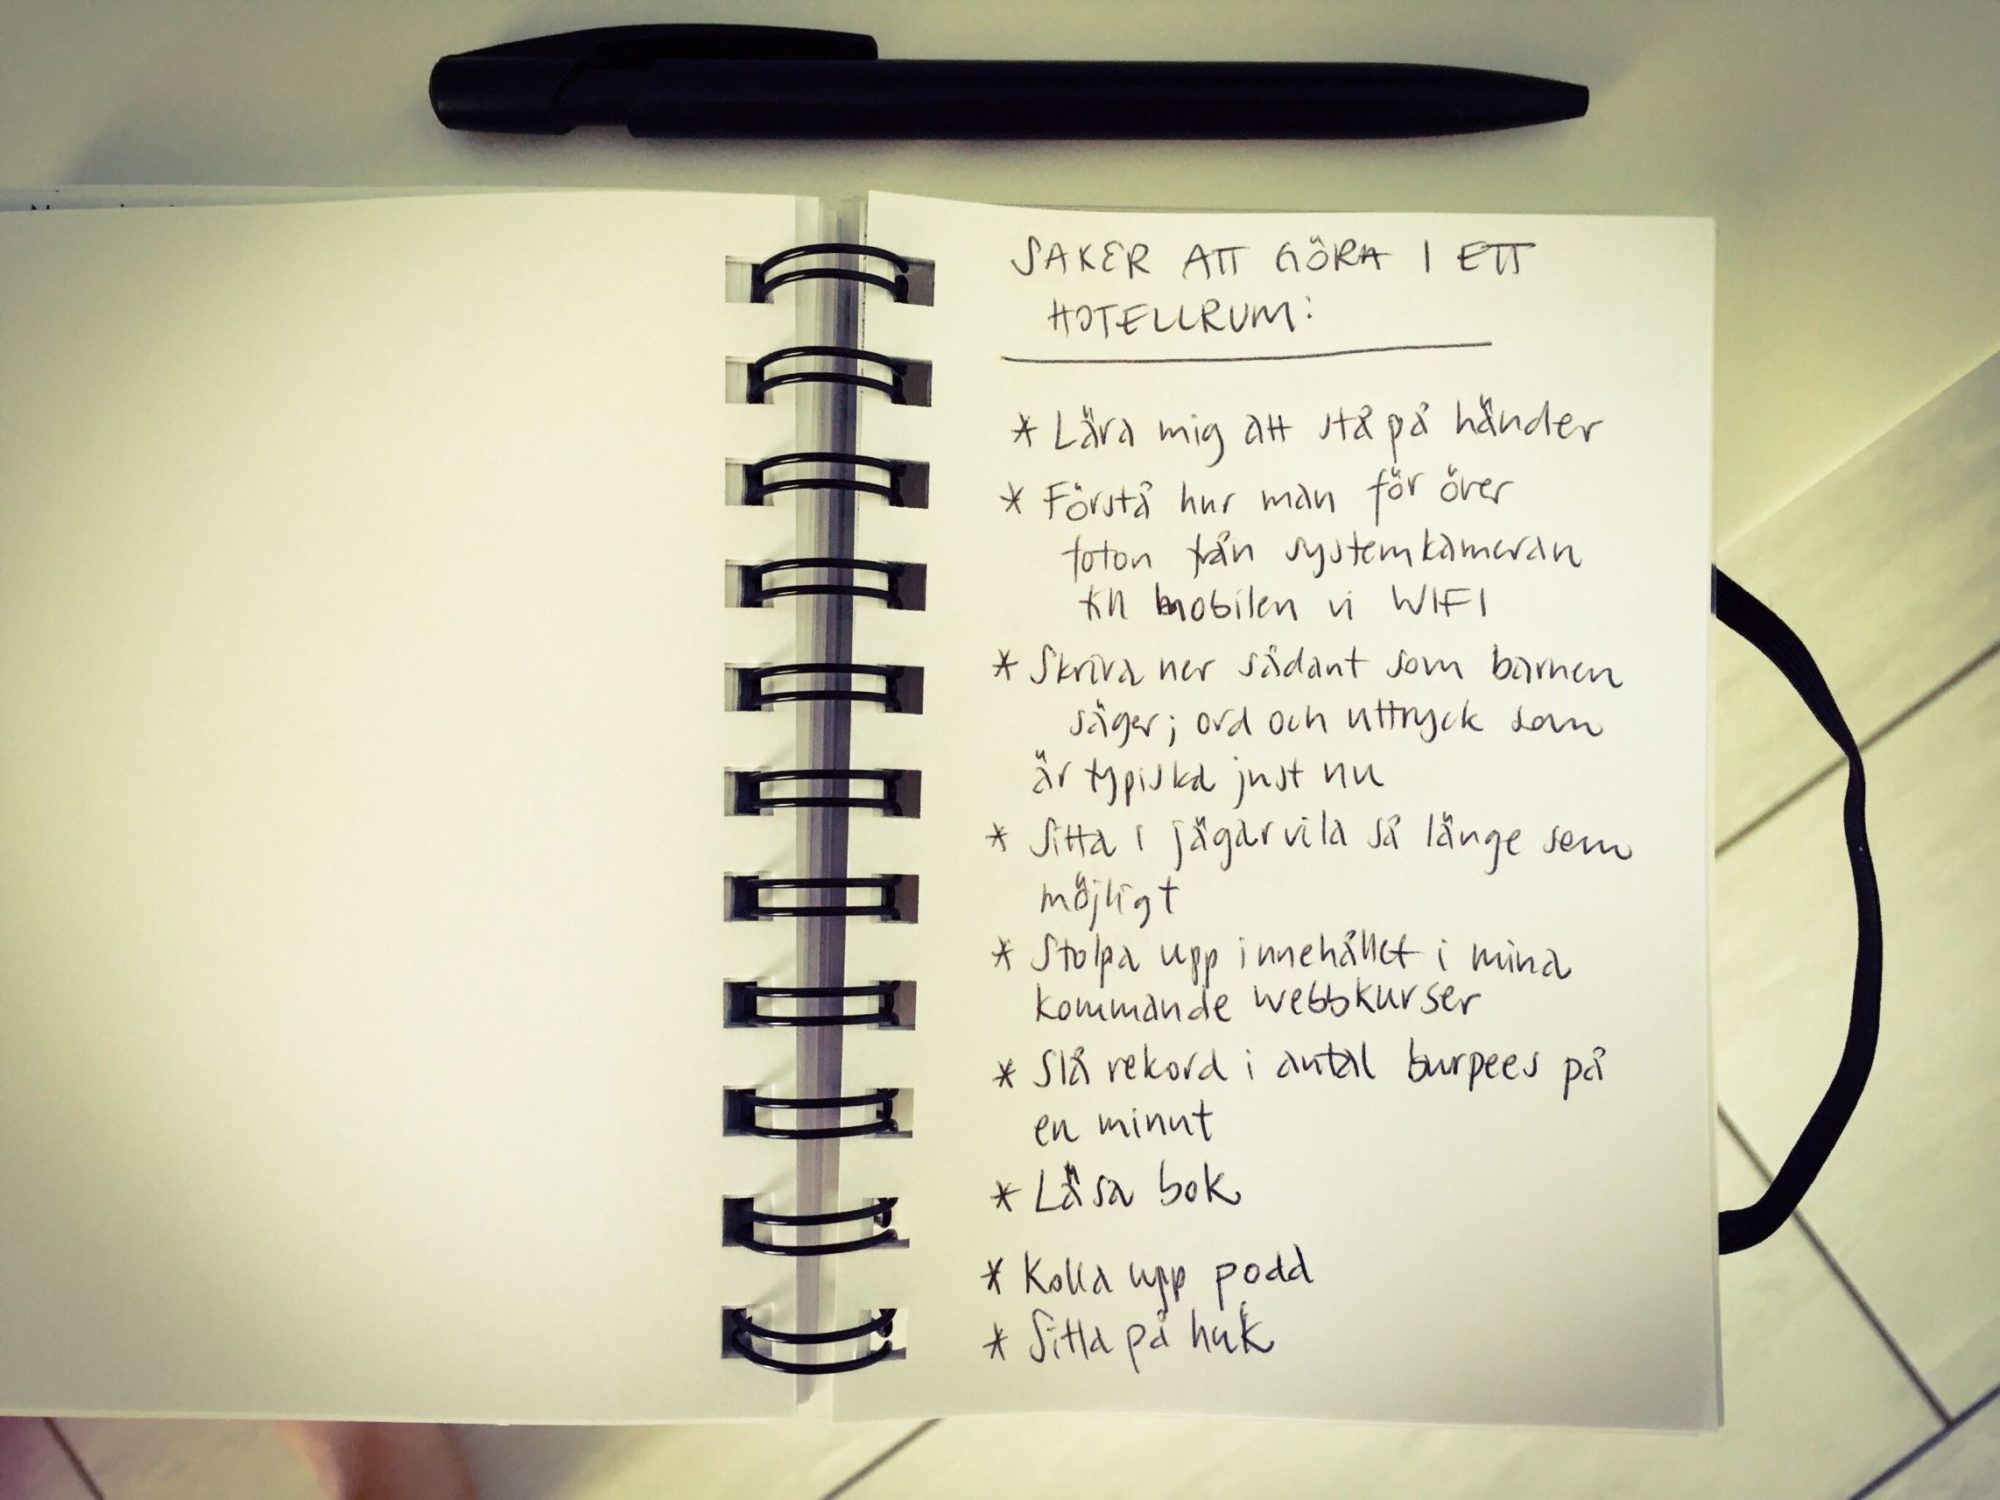 SAKER ATT GÖRA I ETT
HOTELLRUM:
* Lära mig att stå på händer
* Förstå hur man för över
foton från systemkameran
till mobilen vi WIFI
* Skriva ner sådant som barnen
säger; ord och uttryck som
är typiska just nu
* Sitta i jägarvila så länge som
möjligt
* Stolpa upp innehållet i mina
kommande webbkurser
* Slå rekord i antal burpees på
en minut
* Läsa bok
* Kolla upp podd
* Sitta på huk